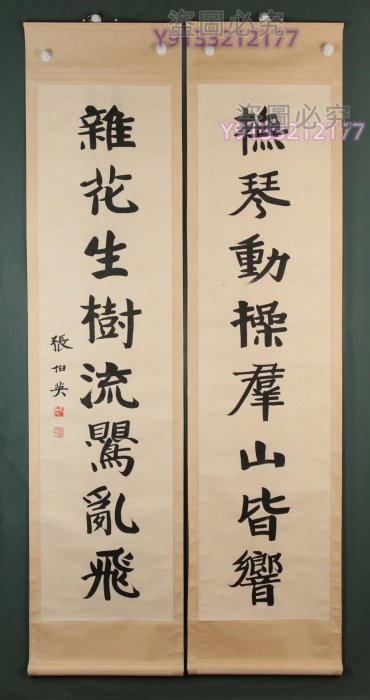 撫琴動操羣山皆響
雜花生樹流鶯亂飛
張伯英
盜圖必究
Y9153212177
盜圖必究
Y9153212177